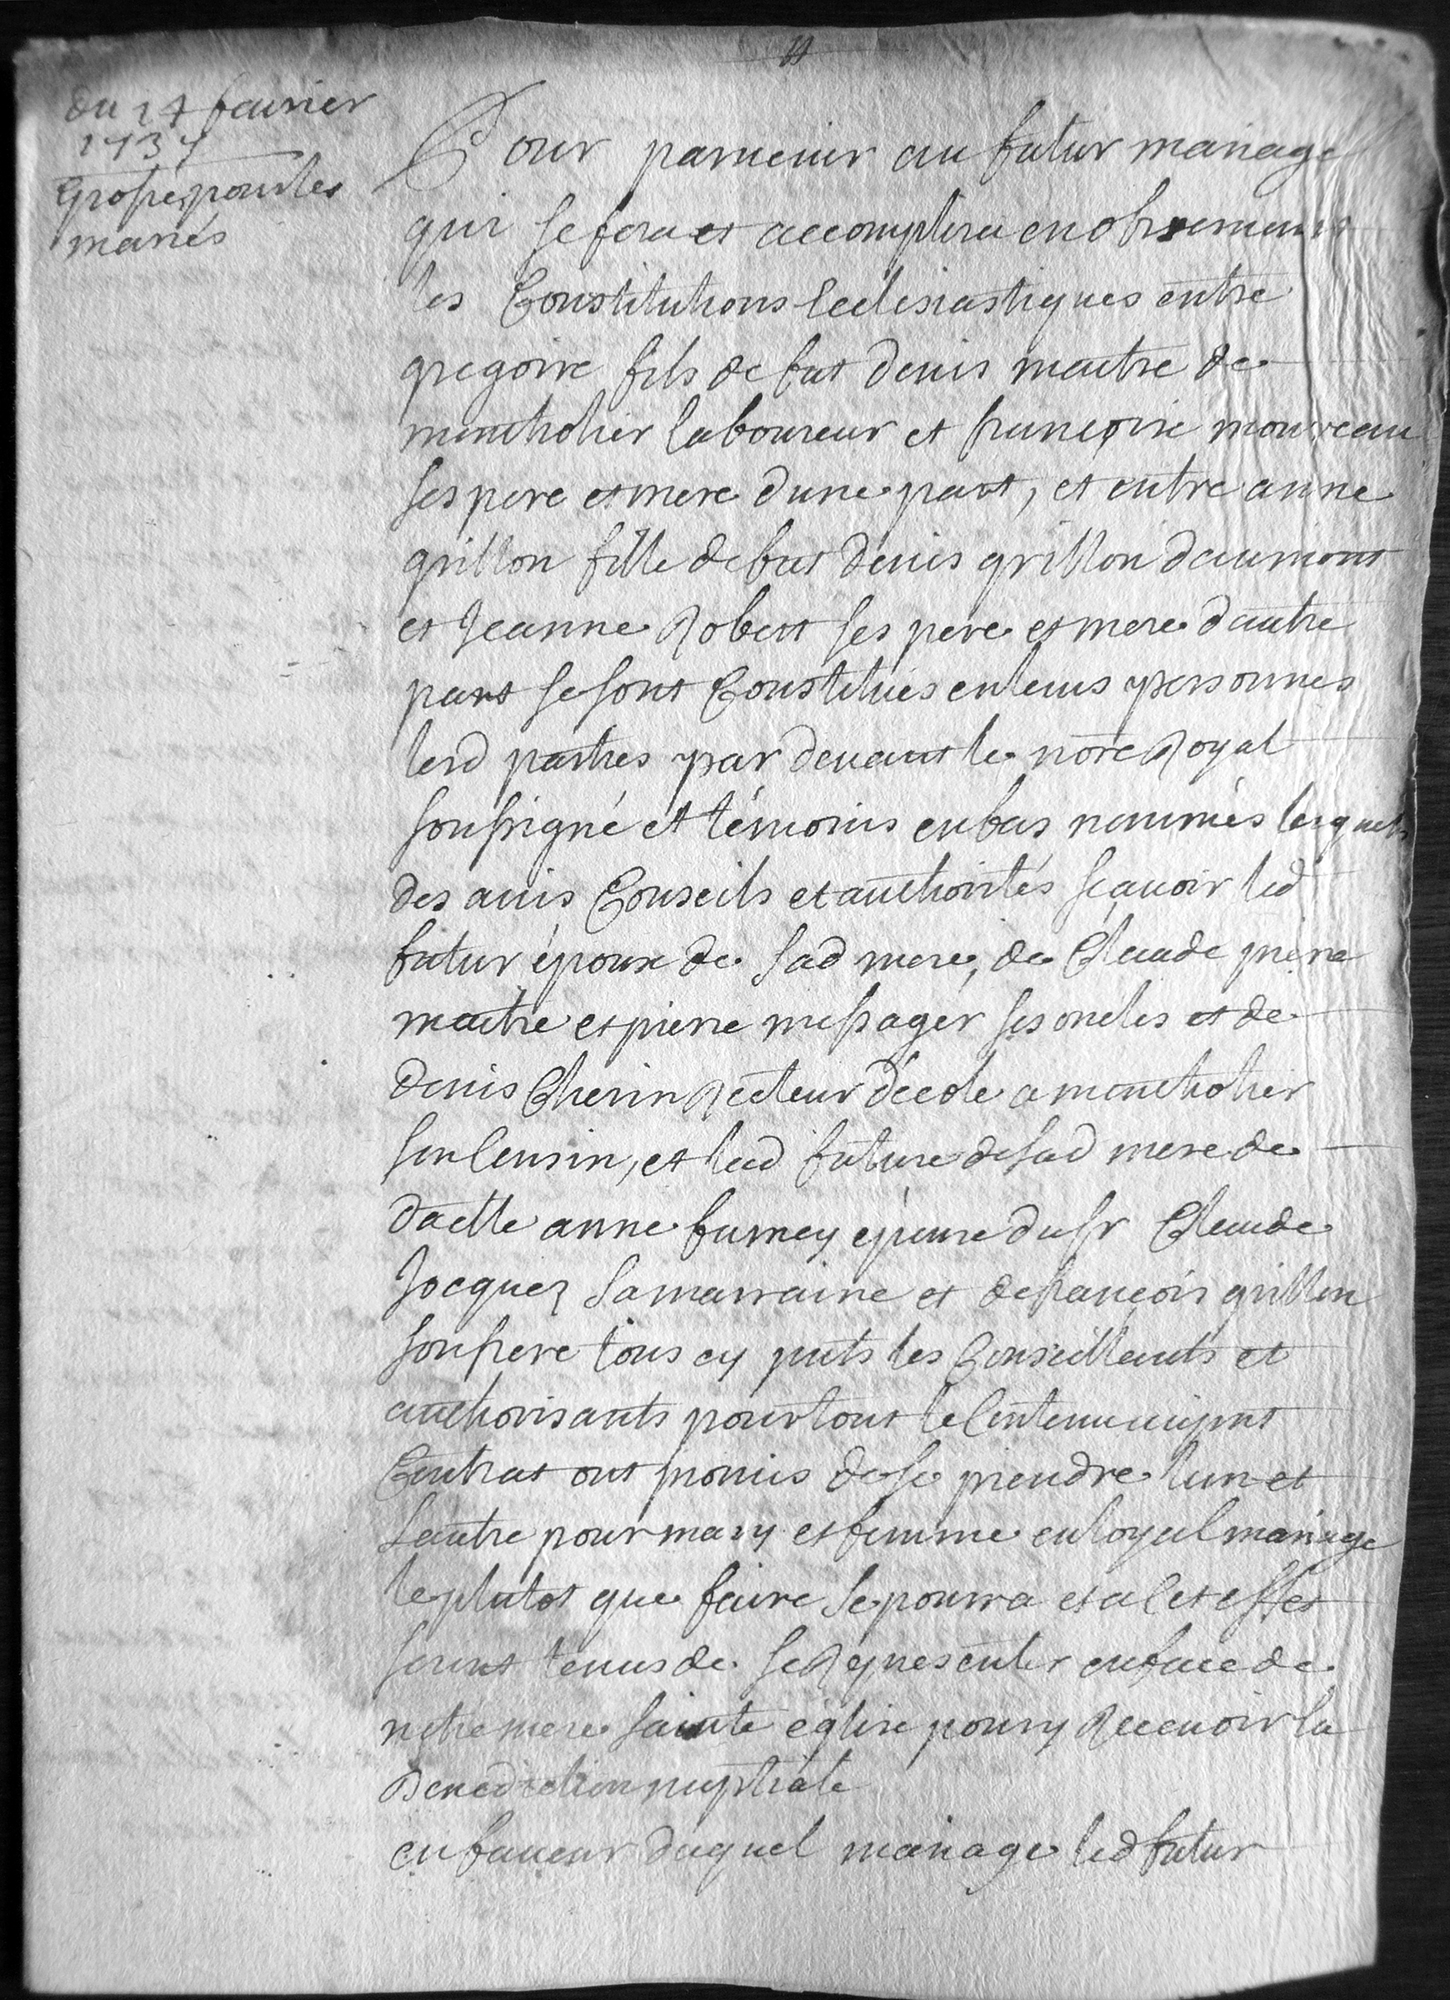 du 24 feurier
1737
Grosse pour les
mariés
Pour paruenir au futur mariage
qui se fera et accomplira en obseruant
les Constitutions Eclesiastiques entre
gregoire fils de fut denis maitre de
montholier laboureur et françoise moureau
ses pere et mere dune part, et entre anne
grillon fille de fut denis grillon daumont
et Jeanne Robert ses pere et mere dautre
part se sont Constitués en leurs personnes
lesd parties par deuant le nore Royal
soussigné et témoins en bas nommés lesquels
des auis Conseils et authorités scauoir led
futur époux de sad mere, de Claude pierre
maitre et pierre messager ses oncles et de
denis Cherin Recteur décole a montholier
son Cousin, et lad future de sad mere de
dalle anne fumey épouse du sr Claude
Jacquez sa marraine et de françois grillon
son frere tous cy pnts les Conseillants et
authorisants pour tout le Contenu au pnt
Contrat ont promis de se prendre lun et
lautre pour mary et femme en loyal mariage
le plutot que faire se pourra et a Cet effet
seront tenus de se Representer en face de
notre mere sainte eglise pour y Receuoir la
Benediction nuptiale
en faueur duquel mariage led futur